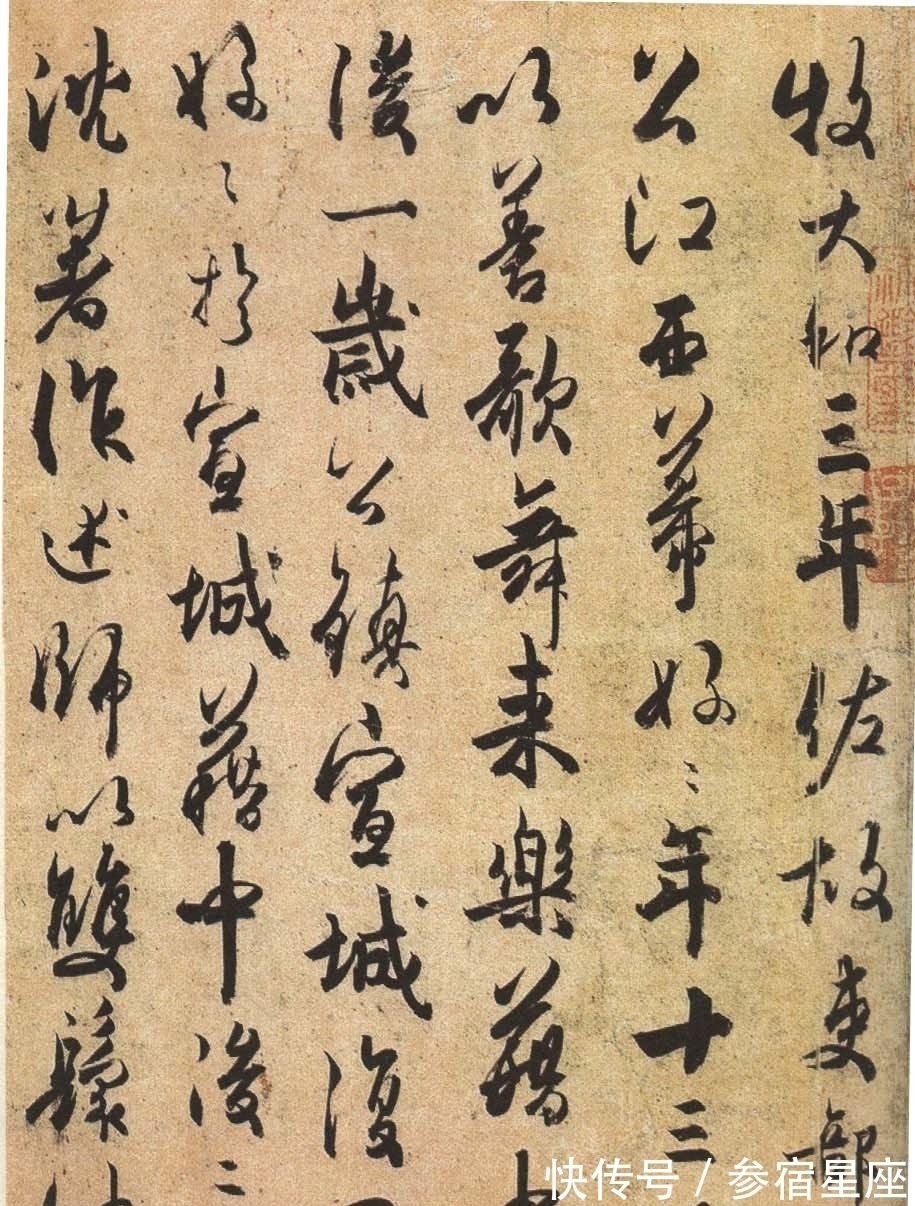 牧大和三年佐故吏部
公江西幕好々年十三
以善歌舞来樂籍中
後一歲公鎮宣城復
好々於宣城籍中後二
沈著作述師以雙鬟
快传号 / 参宿星座